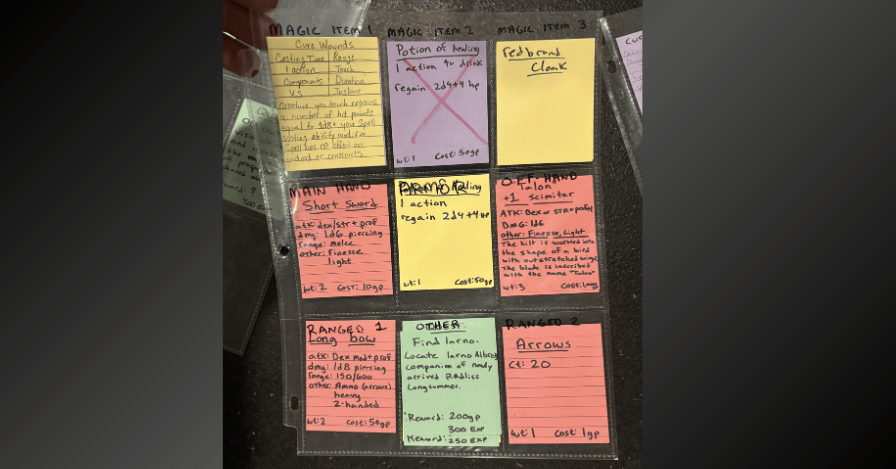 MAGIC ITEM 1
Cure Wounds
Casting Time Range
1 action Touch
Components Duration
V S Instant
creature you touch regains
a number of hit points
equal to 1d8 + you Spell
casting ability mod. for
Spell has no effect on
undead or constructs
MAGIC ITEM 2
Potion of healing
1 action to drink
regain: 2d4+4 hp
wt: 1 Cost: 50gp
MAGIC ITEM 3
redbrand
Cloak
MAIN HAND
Short Sword
atk: dex/str + prof
dmg: 1d6 piercing
range: melee
other: Finesse
light
wt: 2 Cost: 10gp
ARMOR
healing
1 action
regain 2d4+4 hp
wt: 1 Cost: 50gp
OFF-HAND
Talon
+1 scimitar
ATK: Dex or str + prof
DMG: 1d6
other: Finesse, Light
The hilt is worked into
the shape of a bird
with outstretched wings
The blade is inscribed
with the name "Talon"
wt: 3 Cost:
RANGED 1
Long bow
atk: Dex mod + prof
dmg: 1d8 piercing
range: 150/600
other: Ammo (arrows)
heavy
2-handed
wt: 2 Cost: 50gp
OTHER
Find Iarno.
Locate Iarno Albrek
companion of newly
arrived
Longsummer.
Reward: 200gp
300 EXP
Reward: 250 EXP
RANGED 2
Arrows
Ct: 20
wt: 1 Cost: 1gp